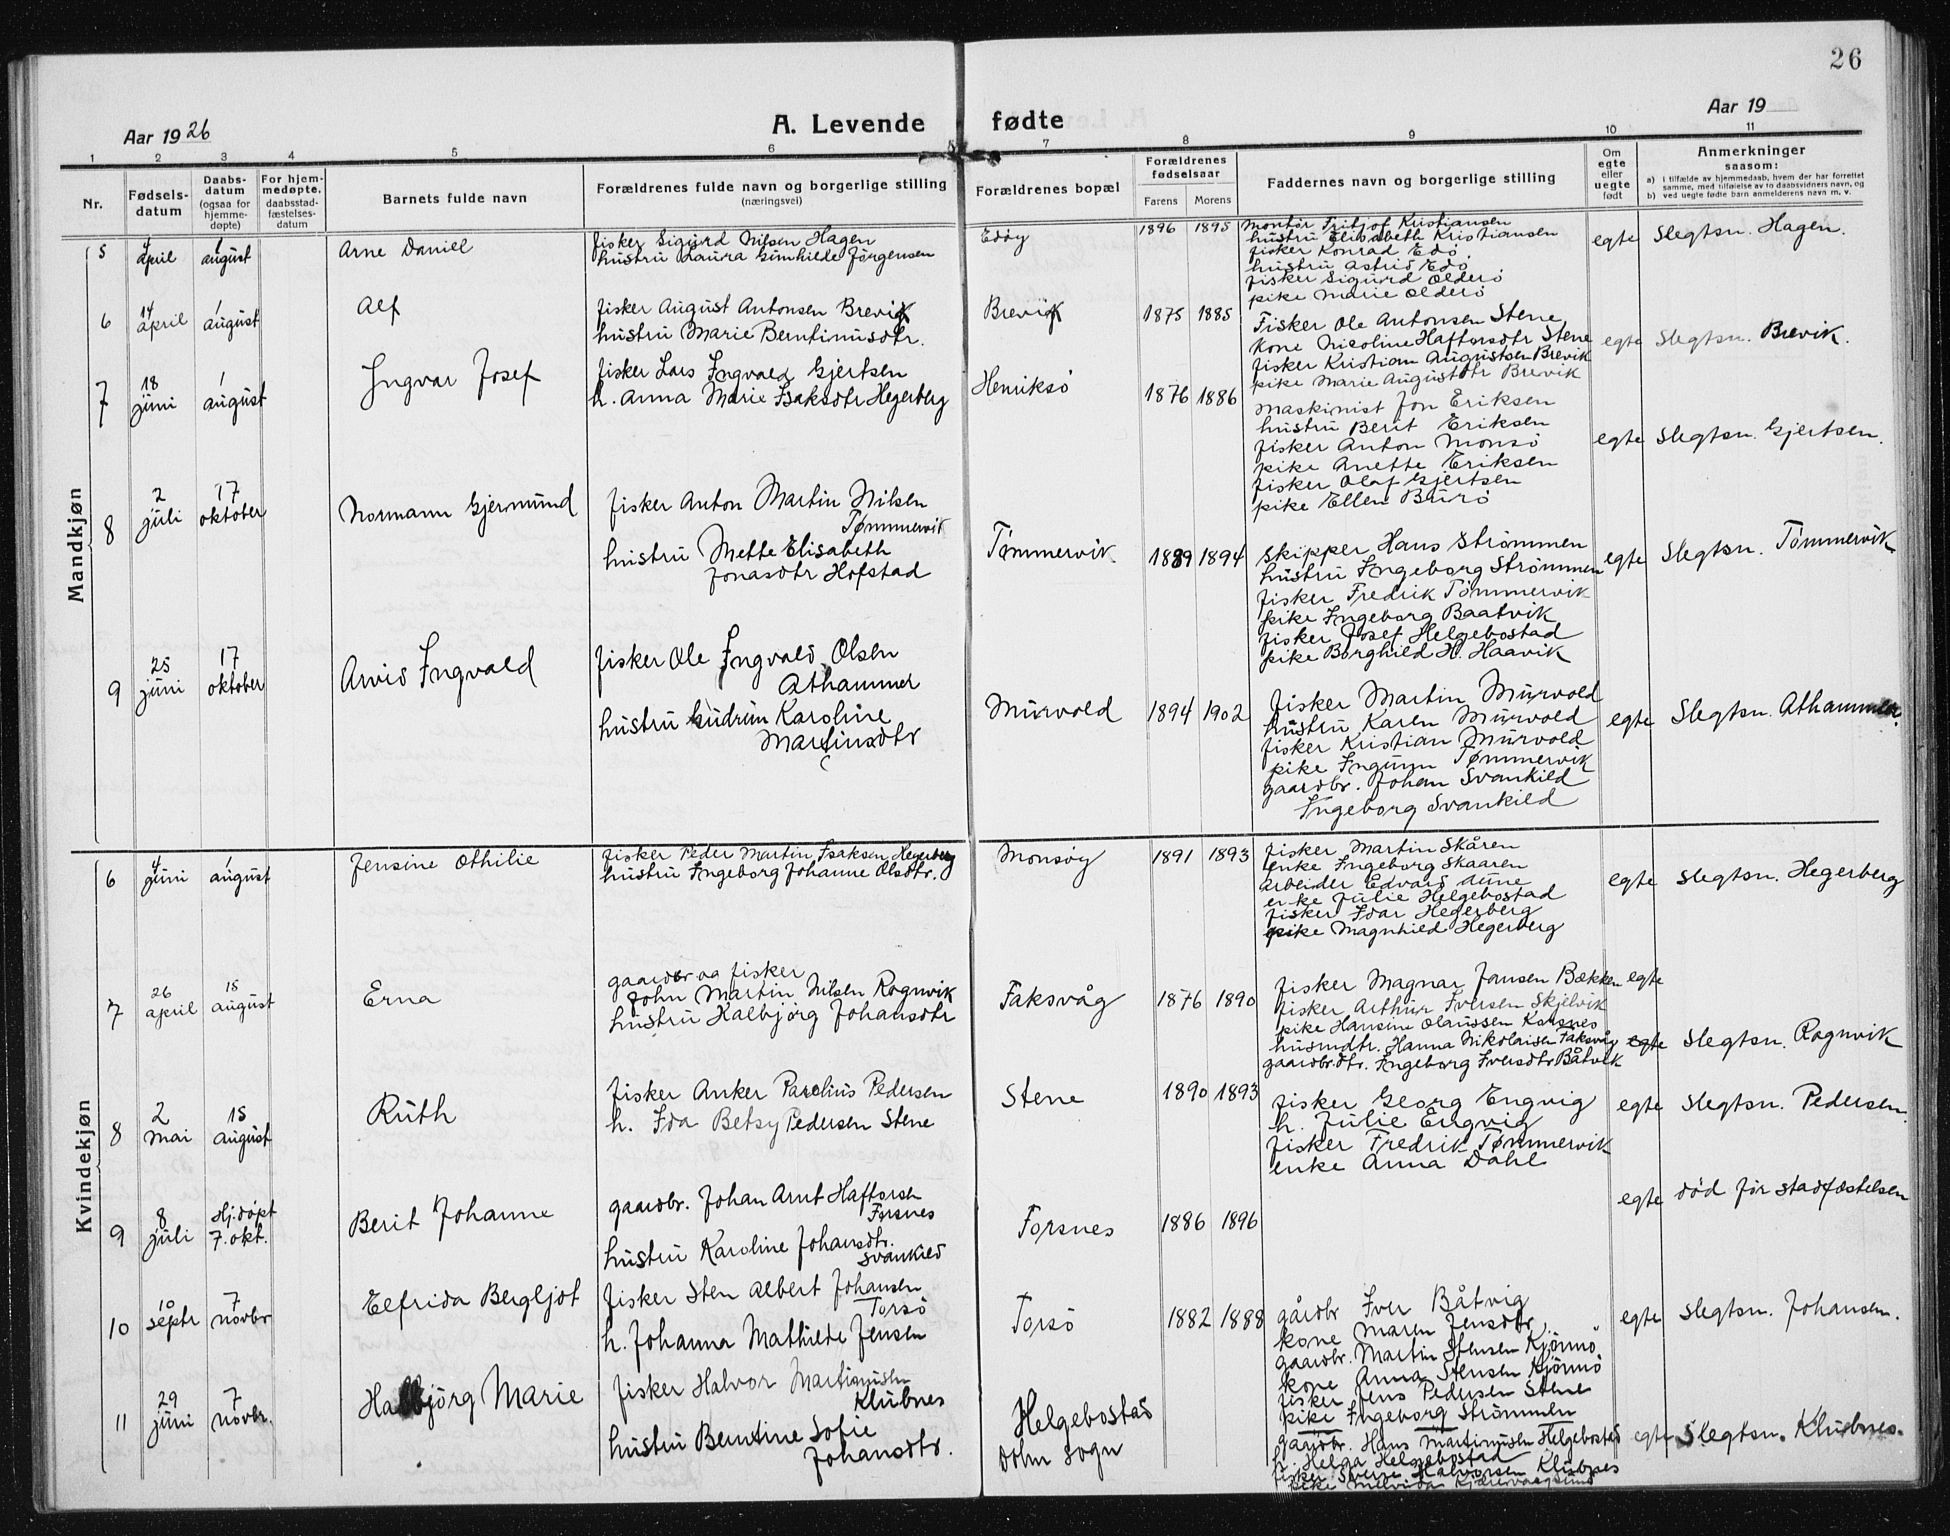 26
Aar 1926
A. Levende fødte
Aar 19
1 2 3 4 5 6 7 8 9 10 11
Nr.
Fødsels-
datum
Daabs-
datum
(ogsaa for
hjemme-
døpte)
For hjem-
medøpte.
daabsstad-
fæstelses-
datum
Barnets fulde navn
Forældrenes fulde navn og borgerlige stilling
(næringsvei)
Forældrenes bopæl
Forældrenes
fødselsaar
Farens Morens
Faddernes navn og borgerlige stilling
Om
egte
eller
uegte
født
Anmerkninger
saasom:
a) i tilfælde av hjemmedaab, hvem der har forrettet
samme, med tilføielse av to daabsvidners navn, og
b) ved uegte fødte barn anmelderens navn m. v.
Mandkjøn
5
4 april
1 august
Arne Daniel
fisker Sigurd Nilsen Hagen
hustru Laura Gunhilde Jørgensen
Edøy
1896 1895
Montør Fritjof Kristiansen
hustru Elisabeth Kristiansen
fisker Konrad Edö
hustru Astrid Edö
fisker Sigurd Olderö
pike Marie Olderö
egte
Slegtsn. Hagen.
6
14 april
1 august
Alf
fisker August Antonsen Brevik
hustru Marie Berntinusdtr.
Brevik
1875 1885
Fisker Ole Antonsen Stene
Kone Nicoline Haftorsdtr Stene
fisker Kristian Augustsen Brevik
pike Marie Augustdtr Brevik
egte
Slegtsn. Brevik.
7
18 juni
1 august
Ingvar Josef
fisker Lars Ingvald Gjertsen
h. Anna Marie Isaksdtr Hegerberg
Henriksö
1876 1886
Maskinist Jon Eriksen
hustru Berit Eriksen
fisker Anton Monsö
pike Anette Eriksen
fisker Olaf Gjertsen
pike Ellen Burö
egte
Slegtsn. Gjertsen.
8
2 juli
17 oktober
Normann Gjermund
fisker Anton Martin Nilsen
Tømmervik
hustru Mette Elisabeth
Jonasdtr Hofstad
Tömmervik
1889 1894
Skipper Hans Strömmen
hustru Ingeborg Strömmen
fisker Fredrik Tömmervik
pike Ingeborg Baatvik
fisker Josef Helgebostad
pike Borghild H. Haavik
egte
Slegtsn. Tömmervik
9
25 juni
17 oktober
Arvid Ingvald
fisker Ole Ingvald Olsen
Athammer
hustru Gudrun Karoline
Martinsdtr
Murvold
1894 1902
fisker Martin Murvold
hustru Karen Murvold
fisker Kristian Murvold
pike Ingunn Tømmervik
gaardbr. Johan Svankild
Ingeborg Svankild
egte
Slegtsn. Athammer.
Kvindekjøn
6
4 juni
1 august
Jensine Othilie
fisker Peder Martin Isaksen Hegerberg
hustru Ingeborg Johanne Olsdtr.
Monsøy
1891 1893
fisker Martin Skåren
enke Ingeborg Skaaren
arbeider Edvard Aune
enke Julie Helgebostad
fisker Idar Hegerberg
pike Magnhild Hegerberg
egte
Slegtsn. Hegerberg
7
26 april
15 august
Erna
gaardbr og fisker
John Martin Nilsen Rognvik
hustru Halbjörg Johansdtr
Faksvåg
1876 1890
fisker Magnar Jansen Bækken
fisker Arthur Iversen Skjelvik
pike Hansine Olaussen Korsnes
husmdtr. Hanna Nikolaisen Faksvåg
gaardbr.dtr. Ingeborg Iversdtr Båtvik
egte
egte
Slegtsn. Rognvik
8
2 mai
15 august
Ruth
fisker Anker Parelius Pedersen
h. Ida Betsy Pedersen Stene
Stene
1890 1893
fisker Georg Engvig
h. Julie Engvig
fisker Fredrik Tømmervik
enke Anna Dahl
egte
Slegtsn. Pedersen.
9
8 juli
Hj.döpt
7. okt.
Berit Johanne
gaardbr. Johan Arnt Haftorsen
Forsnes
hustru Karoline Johansdtr.
Svankild
Forsnes
1886 1896
egte
död för stadfæstelsen
10
10 septr
7 novbr
Elfrida Bergljot
fisker Sten Albert Johansen
Torsö
h. Johanna Mathilde Jensen
Torsö
1882 1888
gårdbr Iver Båtvig
kone Maren Jensdtr
gaardbr. Martin Stensen Kjönnö
kone Anna Stensen Kjönnö
fisker Jens Pedersen Stene
pike Ingeborg Strömmen
egte
Slegtsn. Johansen.
11
29 juni
7 novbr.
Halbjörg Marie
fisker Halvor Martinusen
Klubnes
hustru Berntine Sofie
Johansdtr.
Helgebostad
Dolm sogn
gaardbr. Hans Martinusen Helgebostad
h. Helga Helgebostad
fisker Sverre Halvorsen Klubnes
pike
egte
Slegtsn. Klubnes.